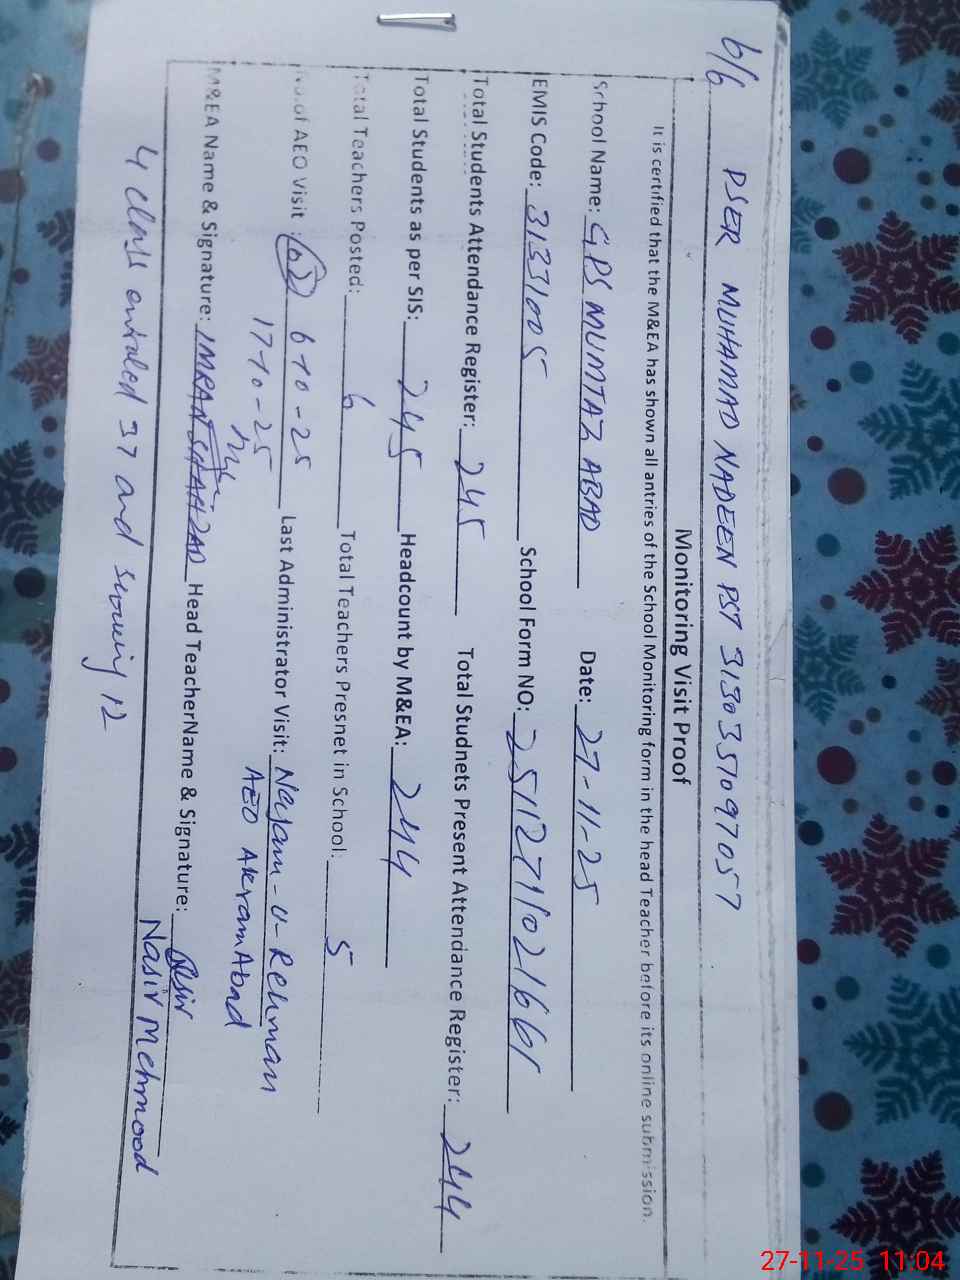 6/6 PSER MUHAMAD NADEEN PST 3130351097057
Monitoring Visit Proof
It is certified that the M&EA has shown all antries of the School Monitoring form in the head Teacher before its online submission.
School Name: GPS MUMTAZ ABAD Date: 27-11-25
EMIS Code: 31331005 School Form NO: 251127102166
Total Students Attendance Register: 245 Total Studnets Present Attendance Register: 244
Total Students as per SIS: 245 Headcount by M&EA: 244
Total Teachers Posted: 6 Total Teachers Presnet in School: 5
No.of AEO Visit : 02 6-10-25 Last Administrator Visit: Najam-u-Rehman
17-10-25 AEO AkramAbad
M&EA Name & Signature: IMRAN SHAHZAD Head TeacherName & Signature: Nasir
Nasir Mehmood
4 Class entroled 37 and scowing 12
27-11-25 11:04